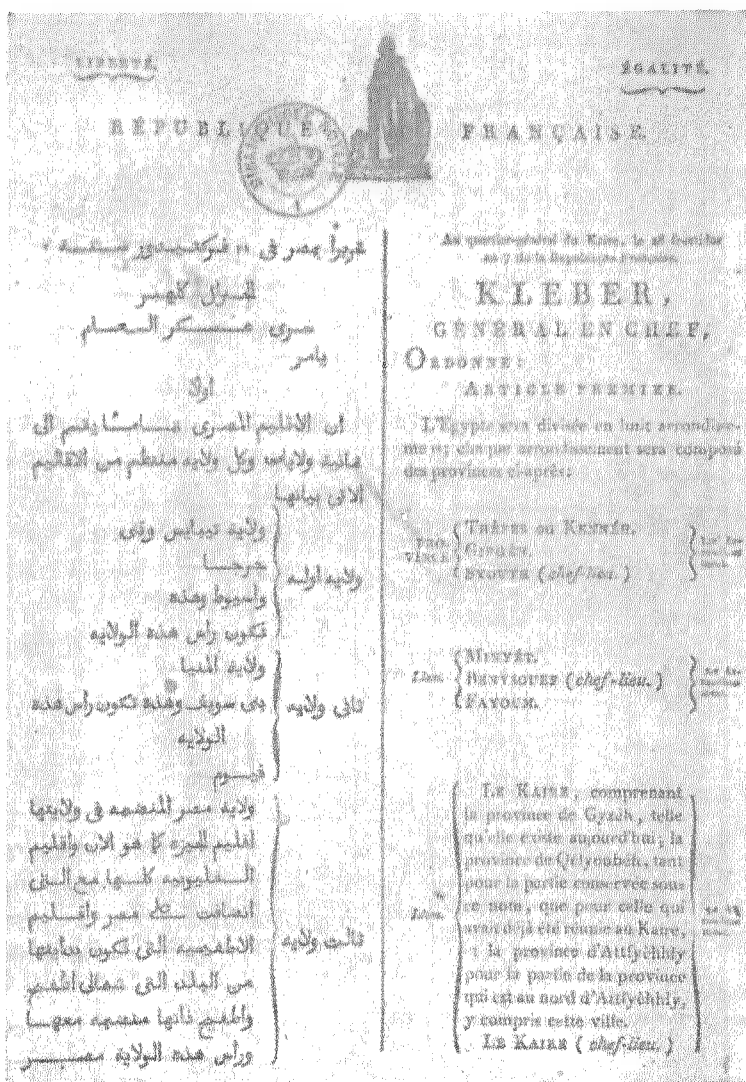 LIBERTÉ.
ÉGALITÉ.
RÉPUBLIQUE
FRANÇAISE.
تحريراً بمصر في
سنة ٧
سرى عسكر العام
يامر
اولا
ان الاقليم المصرى ينقسم الى
ثمانية ولايات وكل ولايه منتظم من الاقاليم
الاتى بيانها
ولايه اوله
جرجا
واسيوط وهذه
تكون راس هذه الولايه
ثانى ولايه
ولاية المنيا
بنى سويف وهذه تكون راس هذه
الولايه
فيوم
ثالث ولايه
ولاية مصر المنضمه فى ولايتها
اقليم الجيزه كما هو الان واقليم
القليوبيه كلها مع التى
انضافت على مصر واقليم
الاطفيحيه التى تكون بدايتها
من البلاد التى شمالى اطفيح
واطفيح ذاتها منضمه معها
وراس هذه الولاية مصر
Au quartier-général du Kaire, le 28 fructidor
an 7 de la République Française.
KLEBER,
GÉNÉRAL EN CHEF,
ORDONNE:
ARTICLE PREMIER.
L'Egypte sera divisée en huit arrondisse-
mens; chaque arrondissement sera composé
des provinces ci-après:
PRO-
VINCE
THÈBES ou KENNÉH.
GIRGÉH.
SYOUTH (chef-lieu.)
Idem.
MINYÉT.
BENYSOUEF (chef-lieu.)
FAYOUM.
Idem.
LE KAIRE, comprenant
la province de Gyzéh, telle
qu'elle existe aujourd'hui; la
province de Qélyoubéh, tant
pour la partie conservée sous
ce nom, que pour celle qui
avait déjà été réunie au Kaire,
; la province d'Attfyéhhly
pour la partie de la province
qui est au nord d'Attfyéhhly,
y compris cette ville.
LE KAIRE (chef-lieu.)